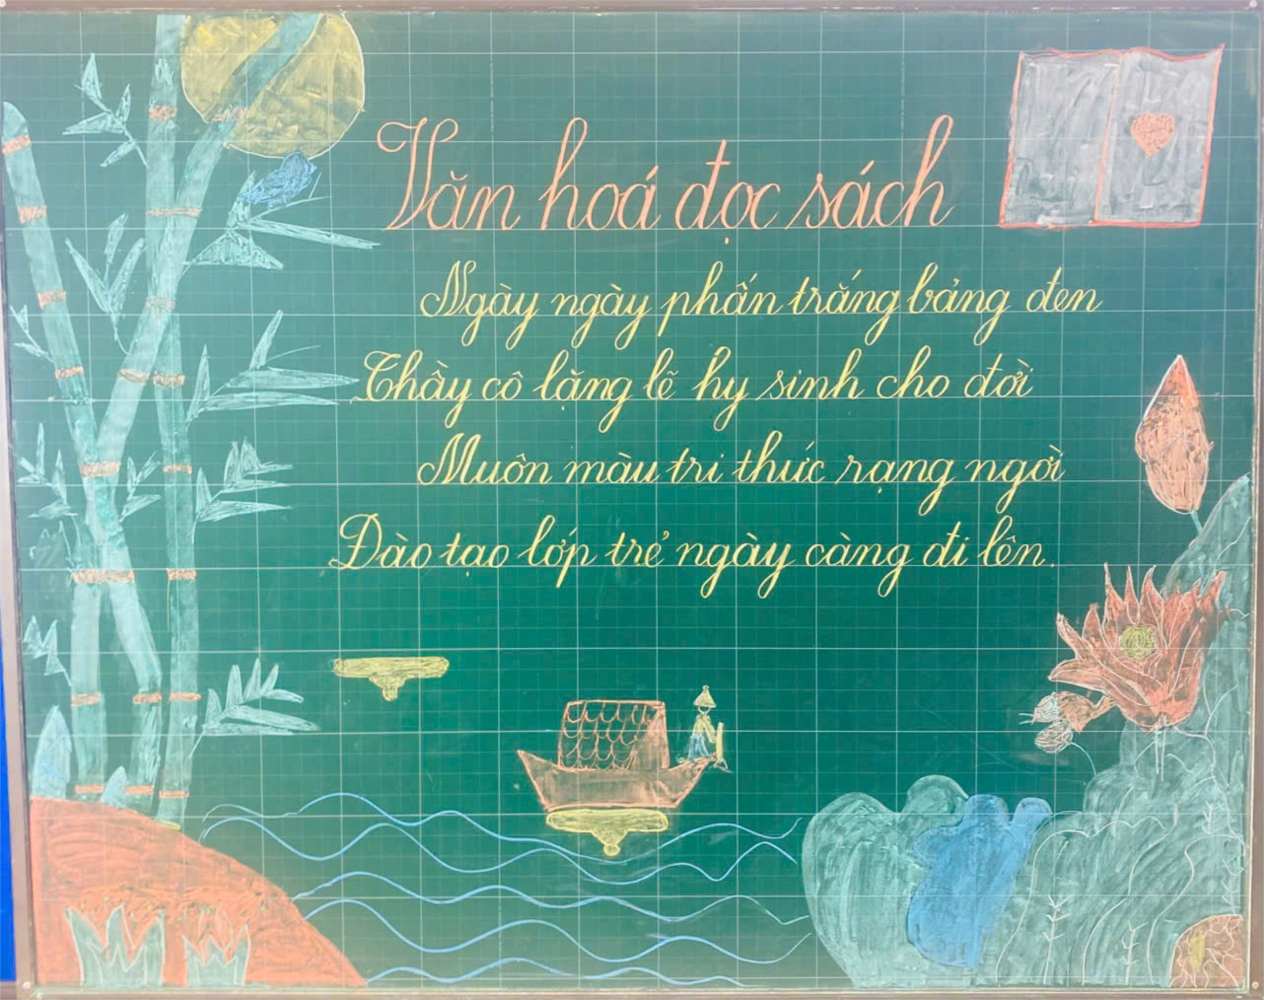 Văn hoá đọc sách
Ngày ngày phấn trắng bảng đen
Thầy cô lặng lẽ hy sinh cho đời
Muôn màu tri thức rạng ngời
Đào tạo lớp trẻ ngày càng đi lên.